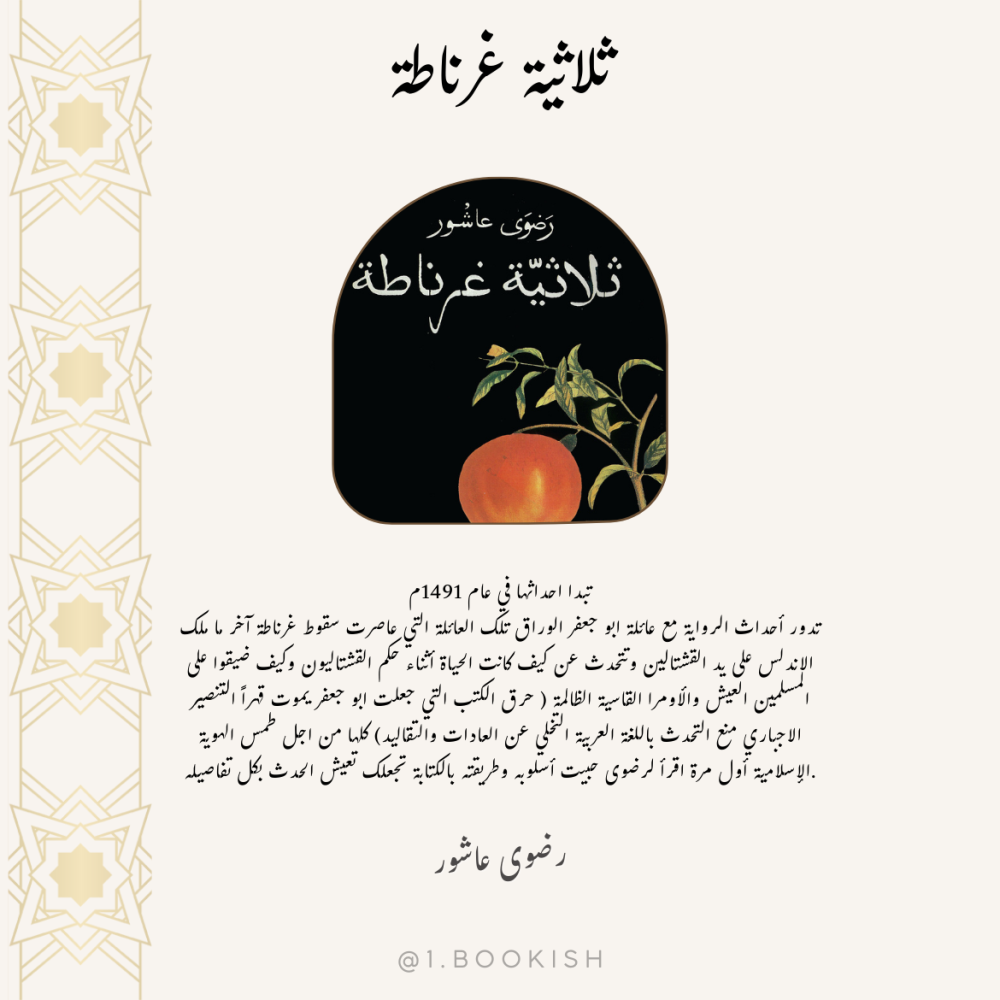 ثلاثية غرناطة
رَضوَى عاشُور
ثلاثيّة غرناطة
تبدا احداثها في عام 1491م
تدور أحداث الرواية مع عائلة ابو جعفر الوراق تلك العائلة التي عاصرت سقوط غرناطة آخر ما ملك
الاندلس على يد القشتالين وتتحدث عن كيف كانت الحياة أثناء حكم القشتاليون وكيف ضيقوا على
المسلمين العيش والأومرا القاسية الظالمة ( حرق الكتب التي جعلت ابو جعفر يموت قهراً التنصير
الاجباري منع التحدث باللغة العربية التخلي عن العادات والتقاليد) كلها من اجل طمس الهوية
.الإسلامية أول مرة اقرأ لرضوى حبيت أسلوبه وطريقته بالكتابة تجعلك تعيش الحدث بكل تفاصيله
رضوى عاشور
@1.BOOKISH